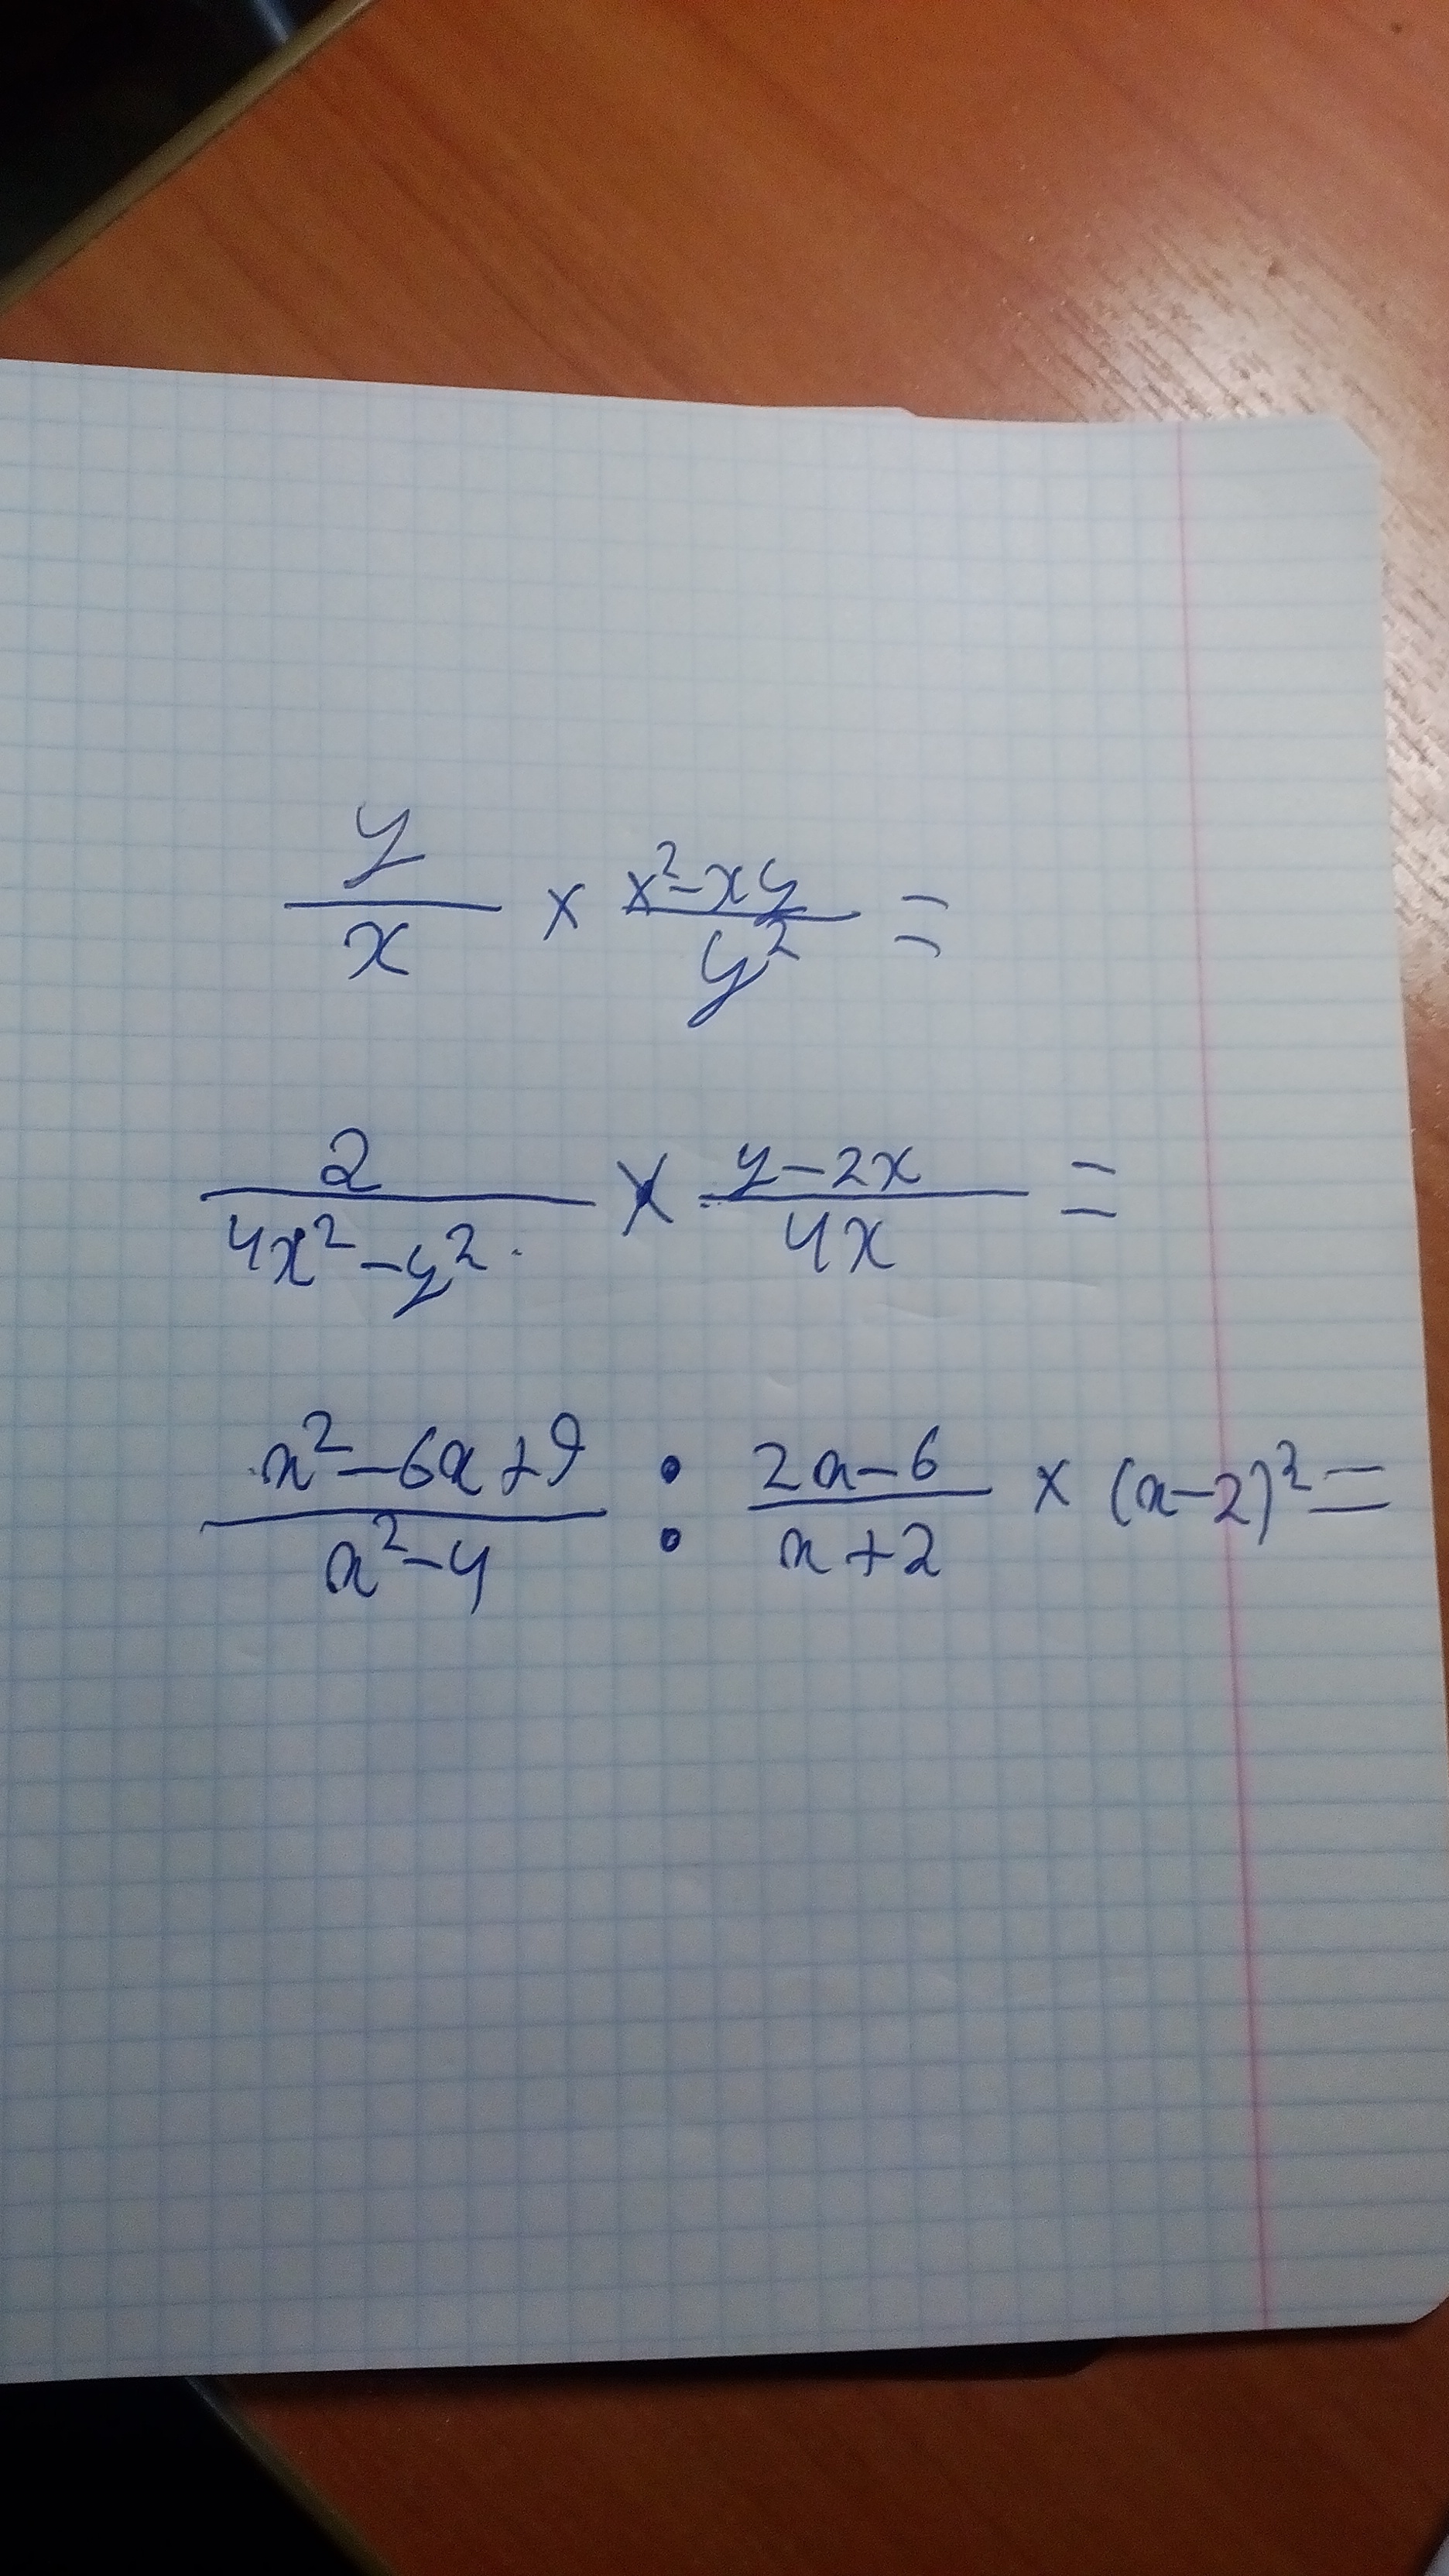 y/x × (x²-xy)/y² =
2/(4x²-y²) × (y-2x)/4x =
(a²-6a+9)/(a²-4) : (2a-6)/(a+2) × (a-2)² =